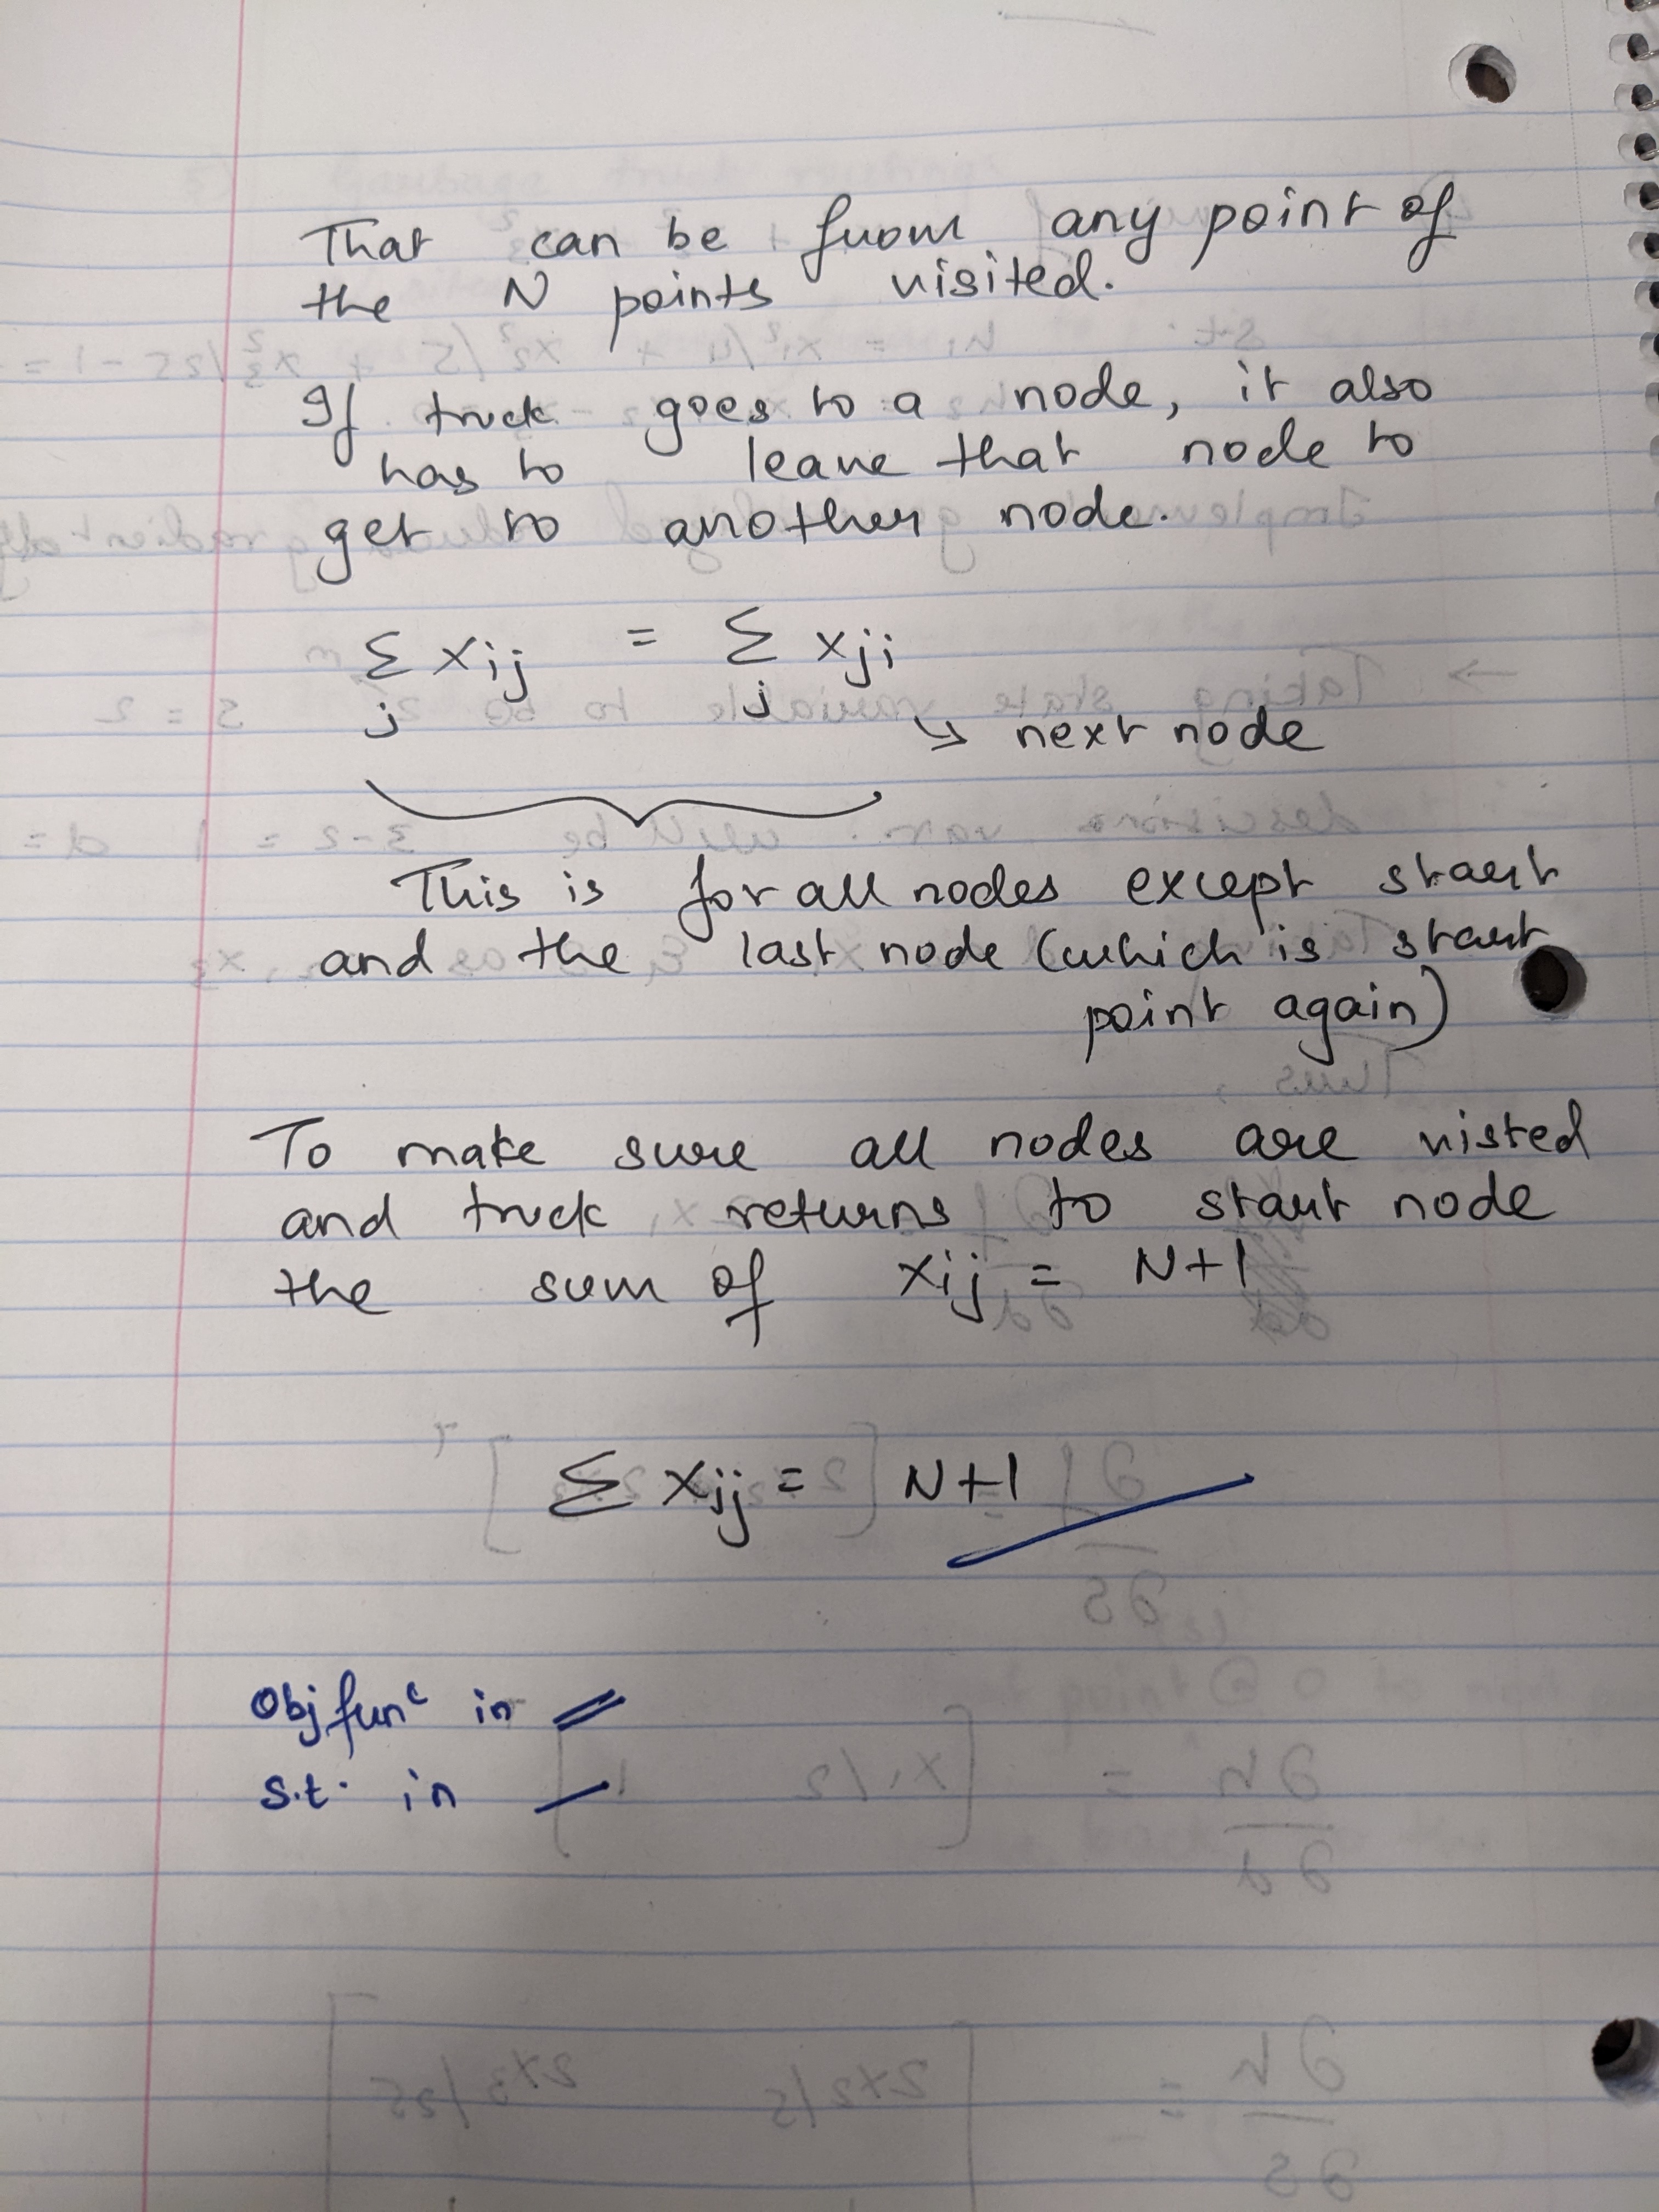 That can be from any point of
the N points visited.
If truck goes to a node, it also
has to leave that node to
get to another node.
Σ xij = Σ xji
j j ↳ next node
This is for all nodes except start
and the last node (which is start
point again)
To make sure all nodes are visted
and truck returns to start node
the sum of xij = N+1
Σ xij = N+1
Obj func in //
s.t. in /